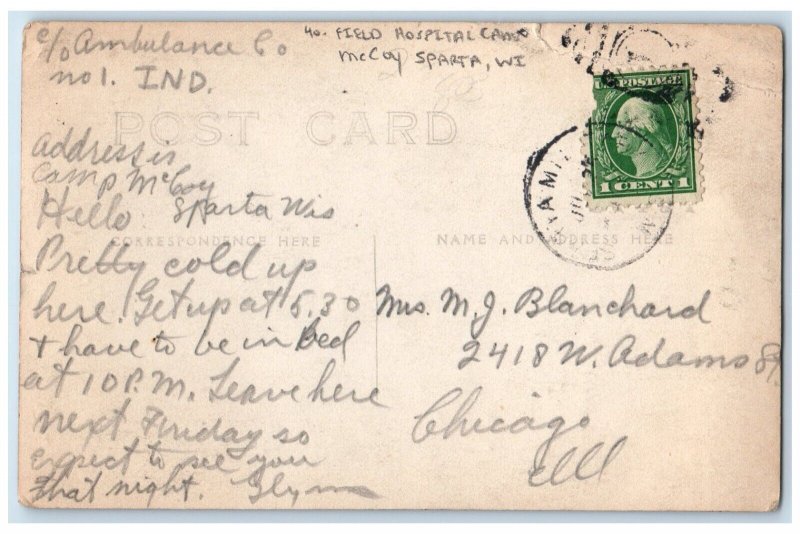 c/o Ambulance Co
no 1. IND.
40. FIELD HOSPITAL CAMP
McCOY SPARTA, WI
POST CARD
Address is
Camp McCoy
Sparta Wis
Hello
CORRESPONDENCE HERE
Pretty cold up
here. Get up at 5.30
+ have to be in bed
at 10 P.M. Leave here
next Friday so
expect to see you
that night. Glynn
NAME AND ADDRESS HERE
U.S. POSTAGE
1 CENT 1
Mrs. M. J. Blanchard
2418 W. Adams St.
Chicago
Ill